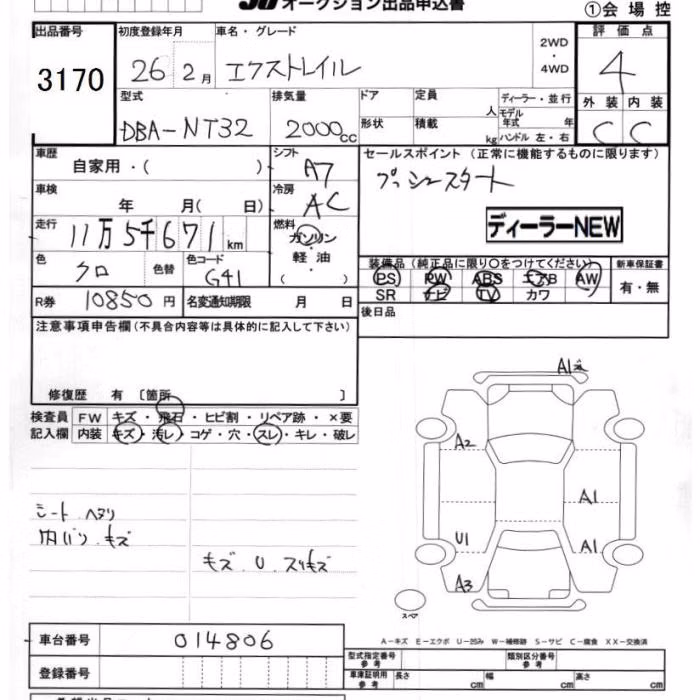 オークション出品申込書
①会場控
出品番号 初度登録年月 車名・グレード 2WD・4WD 評価点
3170 26 2月 エクストレイル 4
型式 排気量 ドア 定員 人 ディーラー・並行 外装 内装
DBA-NT32 2000cc 形状 積載 kg モデル年式 年 ハンドル 左・右 C C
車歴 自家用・( ) シフト A7 セールスポイント(正常に機能するものに限ります)
車検 年 月( 日) 冷房 AC プッシュスタート
走行 11万5千671km 燃料 ガソリン・軽油 ( ) ディーラーNEW
色 クロ 色替 色コード G41 装備品(純正品に限り○をつけてください) 新車保証書
PS PW ABS エアB AW 有・無
SR ナビ TV カワ
R券 10850円 名変通知期限 月 日 後日品
注意事項申告欄(不具合内容等は具体的に記入して下さい)
修復歴 有〔箇所 〕
検査員 FW キズ・飛石・ヒビ割・リペア跡・×要
記入欄 内装 キズ・汚レ・コゲ・穴・スレ・キレ・破レ
シート ヘタリ
内バリ.キズ
キズ.U.スリキズ
A1
A2
A1
U1
A1
A3
スペア
車台番号 014806
登録番号
A-キズ E-エクボ U-凹み W-補修跡 S-サビ C-腐食 XX-交換済
型式指定番号 参考 類別区分番号 参考
車庫証明用 参考 長さ cm 幅 cm 高さ cm